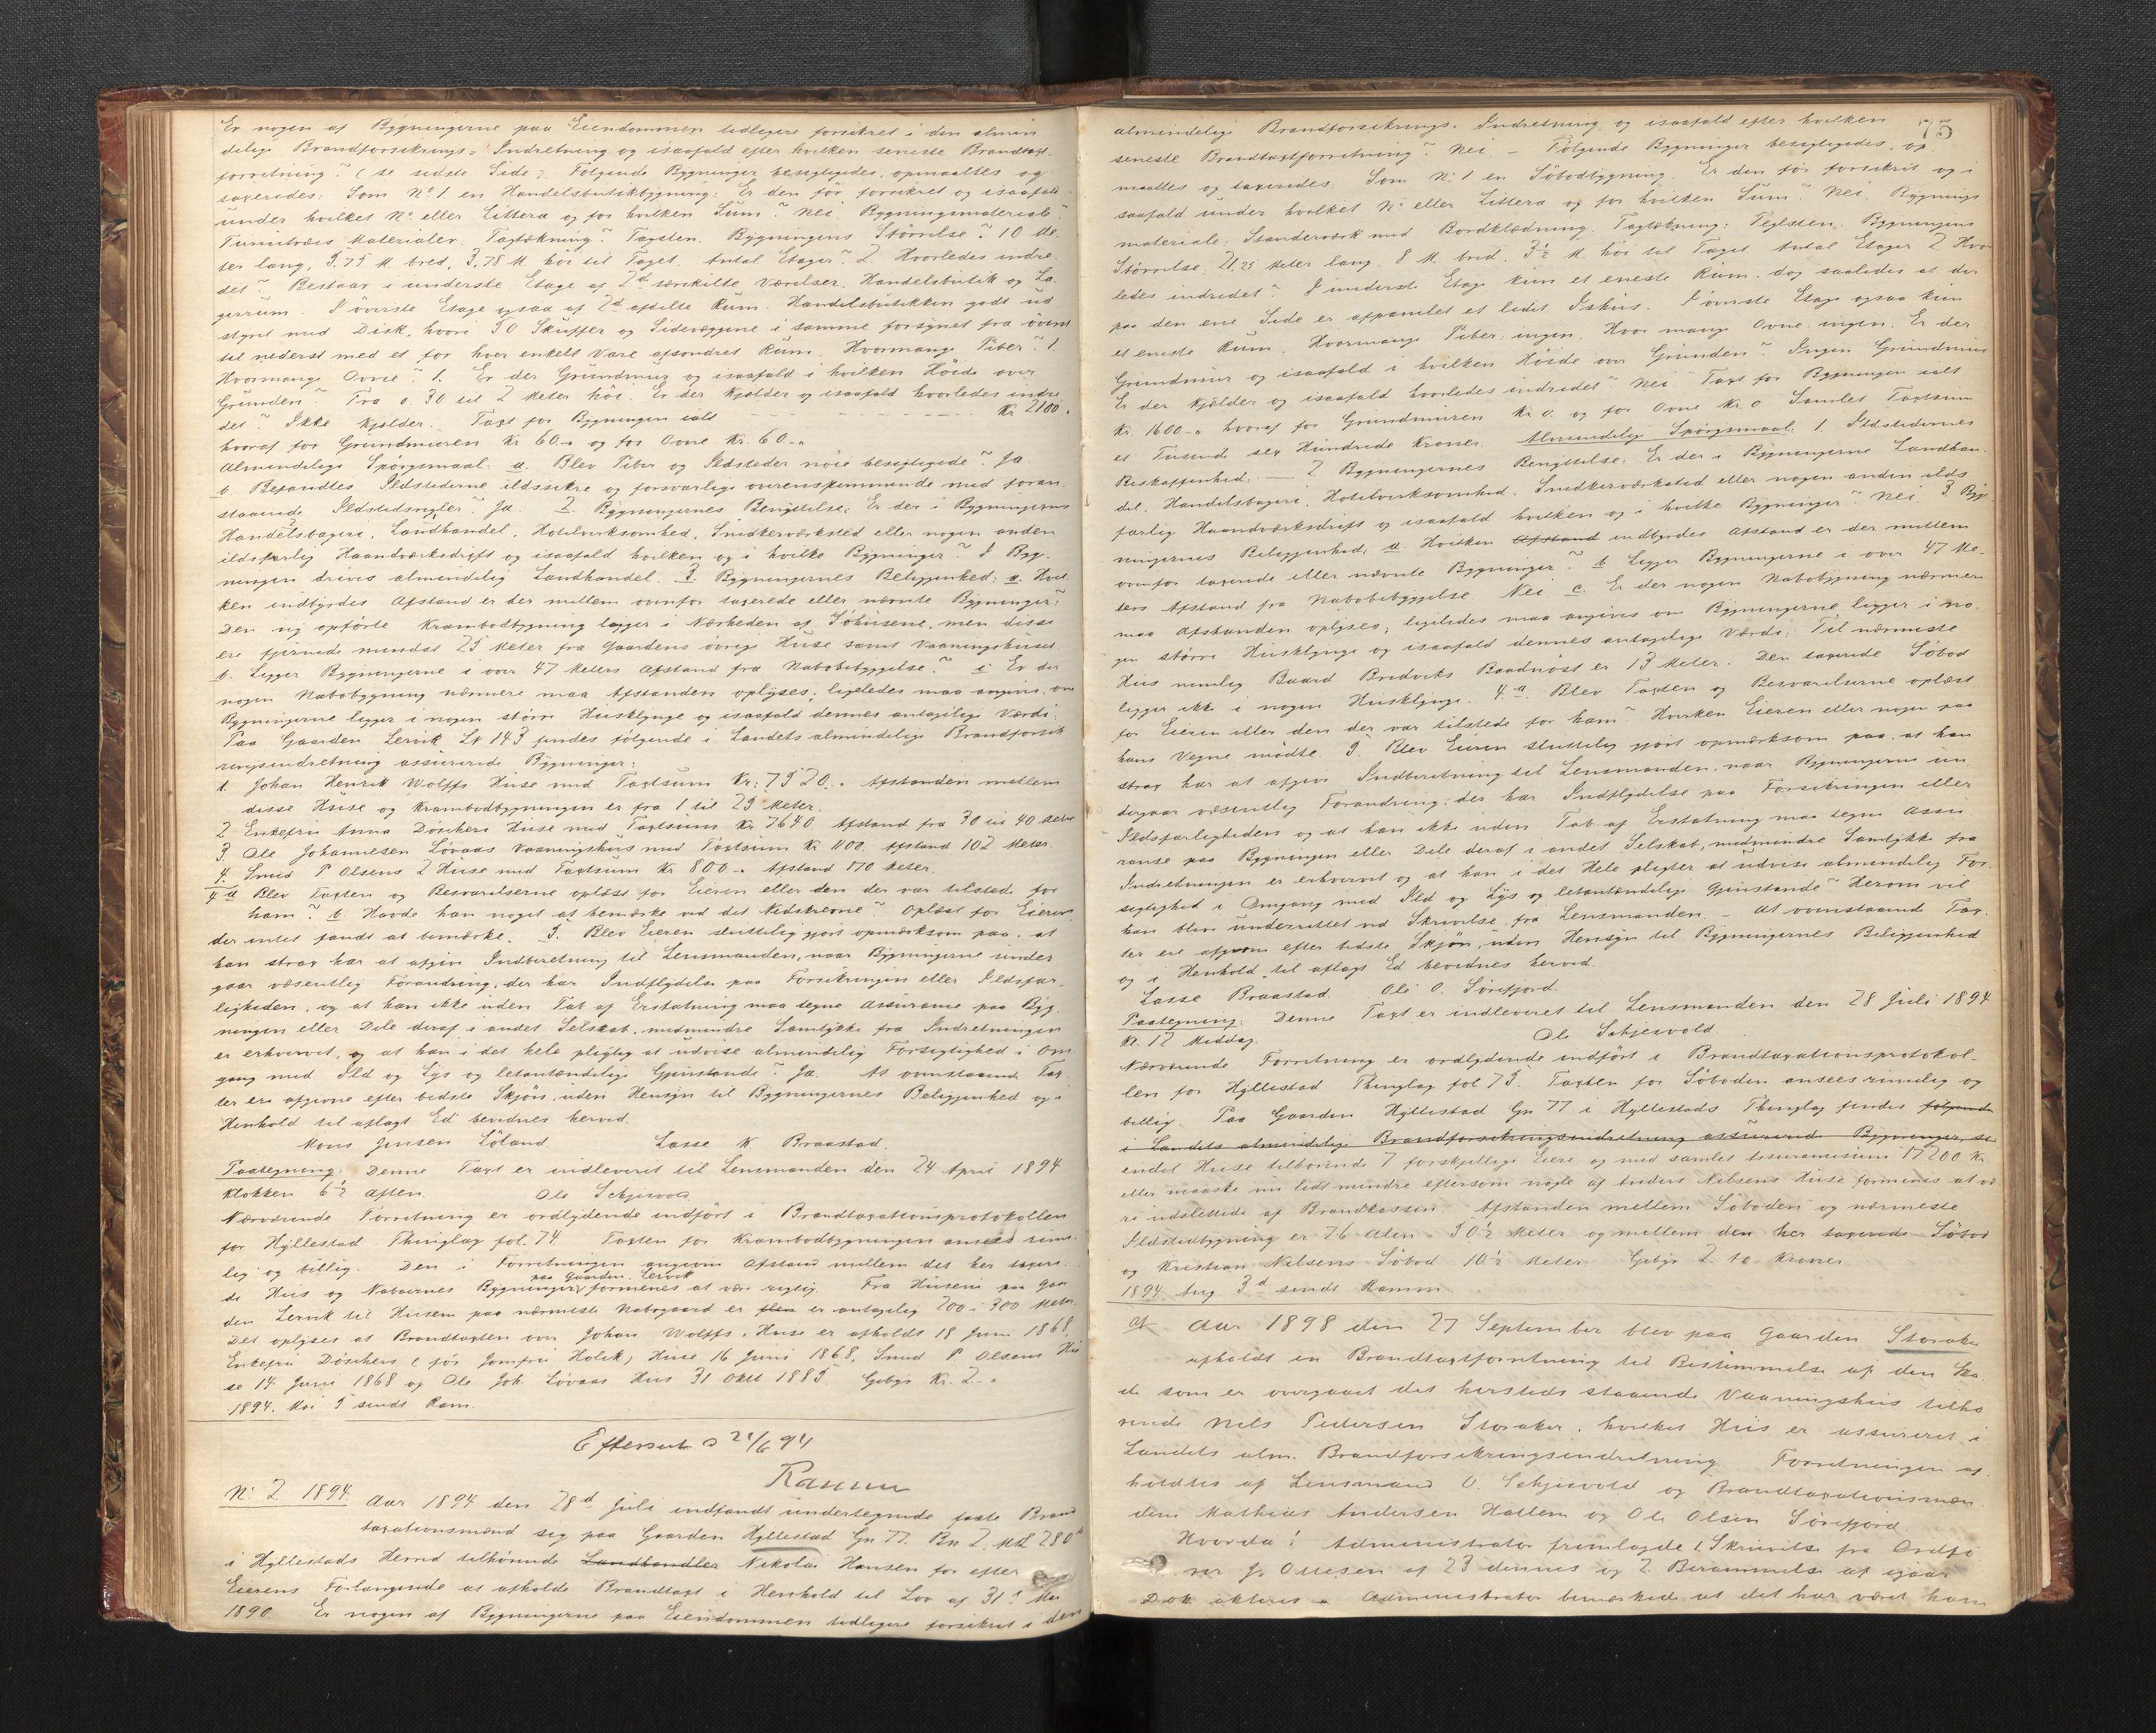 Er nogen af Bygningerne paa Eiendommen tidligere forsikret i den almin
delige Brandforsikrings-Indretning og isaafald efter hvilken seneste Brandtaxt-
forretning? (se sidste Side). Følgende Bygninger besigtigedes, opmaaltes og
taxeredes: Som No 1. en Handelsbutikbygning: Er den før forsikret og isaafald
under hvilket No eller Littera og for hvilken Sum? Nei. Bygningsmateriale?
Tømmer Materialer. Tagtækning? Tagsten. Bygningens Størrelse? 10 Me-
ter lang, 5.75 M. bred, 3.75 M. høi til Taget. Antal Etager? 2. Hvorledes indre-
det? Bestaar i underste Etage af 2de særskilte Værelser, Handelsbutik og La-
gerrum. I øverste Etage ogsaa af 2de afdelte Rum. Handelsbutikken godt ud
styret med Disk, hvori 50 Skuffer og Sidevæggene i samme forsynet fra øverst
til nederst med et for hver enkelt Vare afsondret Rum. Hvormange Piber? 1.
Hvormange Ovne? 1. Er der Grundmur og isaafald i hvilken Høide over
Grunden? Fra 0.30 til 2 Meter høi. Er der Kjælder og isaafald hvorledes indre
det? Ikke Kjælder. Taxt for Bygningen ialt - - - - - - Kr. 2100.
hvoraf for Grundmuren Kr 60.- og for Ovne Kr. 60.-
Almindelige Spørgsmaal. a. Blev Piber og Ildsteder nøie besigtigede? Ja
b Befandtes Ildstederne ildssikre og forsvarlige overensstemmende med foran
staaende Ildstedsregler? Ja. 2. Bygningernes Benyttelse: Er der i Bygningerne
Handelsbageri, Landhandel, Hotelvirksomhed, Snedkerværksted eller nogen anden
ildsfarlig Haandværksdrift og isaafald hvilken og i hvilke Bygninger? I Byg-
ningen drives almindelig Landhandel. 3. Bygningernes Beliggenhed: a. Hvil
ken indbyrdes Afstand er der mellem ovenfor taxerede eller nævnte Bygninger?
Den ny opførte Krambodbygning ligger i Nærheden af Søhusene, men disse
ere fjernede mindst 25 Meter fra Gaardens øvrige Huse samt Vaaningshuset
b. Ligger Bygningerne i over 47 Meters Afstand fra Nabobebyggelse? c Er der
nogen Nabobygning nærmere maa Afstanden oplyses, ligeledes maa angives, om
Bygningerne ligger i nogen større Husklynge og isaafald dennes antagelige Værdi.
Paa Gaarden Lervik Lr 143 findes følgende i Landets almindelige Brandforsik
ringsindretning assurerede Bygninger:
1. Johan Henrik Wolffs Huse med Taxtsum Kr: 7520.- Afstanden mellem
disse Huse og Krambodbygningen er fra 1 til 25 Meter.
2 Enkefru Anna Döschers Huse med Taxtsum Kr 7640 Afstand fra 30 til 40 Meter
3. Ole Johannesen Løvaas Vaaningshus med Taxtsum Kr 1100. Afstand 102 Meter.
4. Smed P Olsens 2 Huse med Taxtsum Kr 800.- Afstand 170 Meter.
4 a Blev Taxten og Besvarelserne oplæst for Eieren eller den der var tilstede for
ham? b Havde han noget at bemærke ved det Nedskrevne? Oplæst for Eieren
der intet fandt at bemærke. 5. Blev Eieren sluttelig gjort opmærksom paa, at
han strax har at afgive Indberetning til Lensmanden, naar Bygningerne under
gaar væsentlig Forandring, der har Indflydelse paa Forsikringen eller Ildsfar-
ligheden, og at han ikke uden Tab af Erstatning maa tegne Assurance paa Byg
ningen eller Dele deraf i andet Selskab, medmindre Samtykke fra Indretningen
er erhvervet, og at han i det hele pligtig at udvise almindelig Forsigtighed i Om
gang med Ild og Lys og letantændelige Gjenstande? Ja. At ovenstaaende Tax
ter ere afgivne efter bedste Skjøn, uden Hensyn til Bygningernes Beliggenhed og i
Henhold til aflagt Ed bevidnes herved.
Mons Jensen Løland Lasse N Braastad.
Paategning: Denne Taxt er indleveret til Lensmanden den 24 April 1894
Klokken 6½ Aften. Ole Schjesvold
Nærværende Forretning er ordlydende indført i Brandtaxationsprotokollen
for Hyllestad Thinglag fol. 74. Taxten for Krambodbygningen ansees rime-
lig og billig. Den i Forretningen angivne Afstand mellem det her taxere-
de Hus og Naboernes Bygninger paa Gaarden Lervik formenes at være rigtig. Fra Husene paa Gaar
den Lervik til Husene paa nærmeste Nabogaard er den er antagelig 200 à 300 Meter.
Det oplyses at Brandtaxten over Johan Wolffs Huse er afholdt 18 Juni 1868,
Enkefru Döschers (før Jomfru Holck) Huse 16 Juni 1868, Smed P Olsens Hu
se 14 Juni 1868 og Ole Joh. Løvaas Hus 31 Okt 1885. Gebyr Kr. 2.-
1894. Mai 5 sendt Ram.
Efterseet d 21/6 94
Ramm
No 2 1894. Aar 1894 den 28d Juli indfandt undertegnede faste Brand
taxationsmænd sig paa Gaarden Hyllestad Gn 77. Bn 2.
i Hyllestads Herred tilhørende Landhandler Nikolai Hansen for efter
Eierens Forlangende at afholde Brandtaxt i Henhold til Lov af 31te Mai
1890. Er nogen af Bygningerne paa Eiendommen tidligere forsikret i den
75
almindelige Brandforsikrings-Indretning og isaafald efter hvilken
seneste Brandtaxtforretning? Nei. - Følgende Bygninger besigtigedes, op-
maaltes og taxeredes. Som No 1 en Søbodbygning. Er den før forsikret og i
saafald under hvilket No eller Littera og for hvilken Sum? Nei. Bygnings
materiale: Standerværk med Bordklædning. Tagtækning: Teglsten. Bygningens
Størrelse. 21,25 Meter lang. 8 M. bred. 3½ M. høi til Taget. Antal Etager 2 Hvor
ledes indredet? I underste Etage kun et eneste Rum, dog saaledes at der
paa den ene Side er afpanelet et lidet Ishus. I øverste Etage ogsaa kun
et eneste Rum. Hvormange Piber: ingen. Hvor mange Ovne: ingen. Er der
Grundmur og isaafald i hvilken Høide over Grunden? Ingen Grundmur
Er der Kjælder og isaafald hvorledes indredet? Nei. Taxt for Bygningen ialt
Kr. 1600.- hvoraf for Grundmuren Kr 0. og for Ovne Kr. 0 Samlet Taxtsum
et Tusinde sex Hundrede Kroner. Almindelige Spørgsmaal: 1. Ildstedernes
Beskaffenhed: - 2 Bygningernes Benyttelse. Er der i Bygningerne Landhan-
del, Handelsbageri Hotelvirksomhed, Snedkerværksted eller nogen anden ilds
farlig Haandværksdrift og isaafald hvilken og i hvilke Bygninger? Nei 3. Byg
ningernes Beliggenhed: a. Hvilken Afstand indbyrdes Afstand er der mellem
ovenfor taxerede eller nævnte Bygninger? b Ligger Bygningerne i over 47 Me-
ters Afstand fra Nabobebyggelse. Nei c. Er der nogen Nabobygning nærmere
maa Afstanden oplyses, ligeledes maa angives om Bygningerne ligger i no-
gen større Husklynge og isaafald dennes antagelige Værdi: Til nærmeste
Hus nemlig Baard Bredviks Baadnøst er 13 Meter. Den taxerede Søbod
ligger ikke i nogen Husklynge. 4.a. Blev Taxten og Besvarelserne oplæst
for Eieren eller den der var tilstede for ham? Hverken Eieren eller nogen paa
hans Vegne mødte. 5. Blev Eieren sluttelig gjort opmærksom paa, at han
strax har at afgive Indberetning til Lensmanden, naar Bygningerne un
dergaar væsentlig Forandring, der har Indflydelse paa Forsikringen eller
Ildsfarligheden og at han ikke uden Tab af Erstatning maa tegne Assu
ranse paa Bygningen eller Dele deraf i andet Selskab, medmindre Samtykke fra
Indretningen er erhvervet og at han i det Hele pligter at udvise almindelig For-
sigtighed i Omgang med Ild og Lys og letantændelige Gjenstande? Herom vil
han blive underrettet ved Skrivelse fra Lensmanden. - At ovenstaaende Tax-
ter ere afgivne efter bedste Skjøn, uden Hensyn til Bygningernes Beliggenhed
og i Henhold til aflagt Ed bevidnes herved.
Lasse Braastad. Ole O. Sørefjord.
Paategning: Denne Taxt er indleveret til Lensmanden den 28 Juli 1894
Kl. 12 Middag. Ole Schjesvold.
Nærværende Forretning er ordlydende indført i Brandtaxationsprotokol-
len for Hyllestad Thinglag fol 75. Taxten for Søboden ansees rimelig og
billig. Paa Gaarden Hyllestad Gn 77 i Hyllestads Thinglag findes følgende
i Landets almindelige Brandforsikringsindretning assurerede Bygninger, se
endel Huse tilhørende 7 forskjellige Eiere og med samlet Assurancesum 17200 Kr
eller maaske nu lidt mindre eftersom nogle af Anders Nilsens Huse formenes at væ
re udslettede af Brandkassen. Afstanden mellem Søboden og nærmeste
Ildstedbygning er 76 Alen = 50½ Meter og mellem den her taxerede Søbod
og Kristian Nilsens Søbod 10½ Meter. Gebyr 2 to Kroner
1894 Aug 3d sendt Ramm
Aar 1898 den 27 September blev paa Gaarden Storaker
afholdt en Brandtaxtforretning til Bestemmelse af den Ska
de som er overgaaet det hersteds staaende Vaaningshus tilhø
rende Nils Pedersen Storaker, hvilket Hus er assureret i
Landets alm. Brandforsikringsindretning. Forretningen af
holdtes af Lensmand O. Schjesvold og Brandtaxationsmæn
dene Mathias Andersen Hatlem og Ole Olsen Sørefjord
Hvorda! Administrator fremlagde 1. Skrivelse fra Ordfø
rer J. Ottesen af 23 dennes og 2. Berammelse af igaar
Dok akteres. Administrator bemærkede at det har været ham